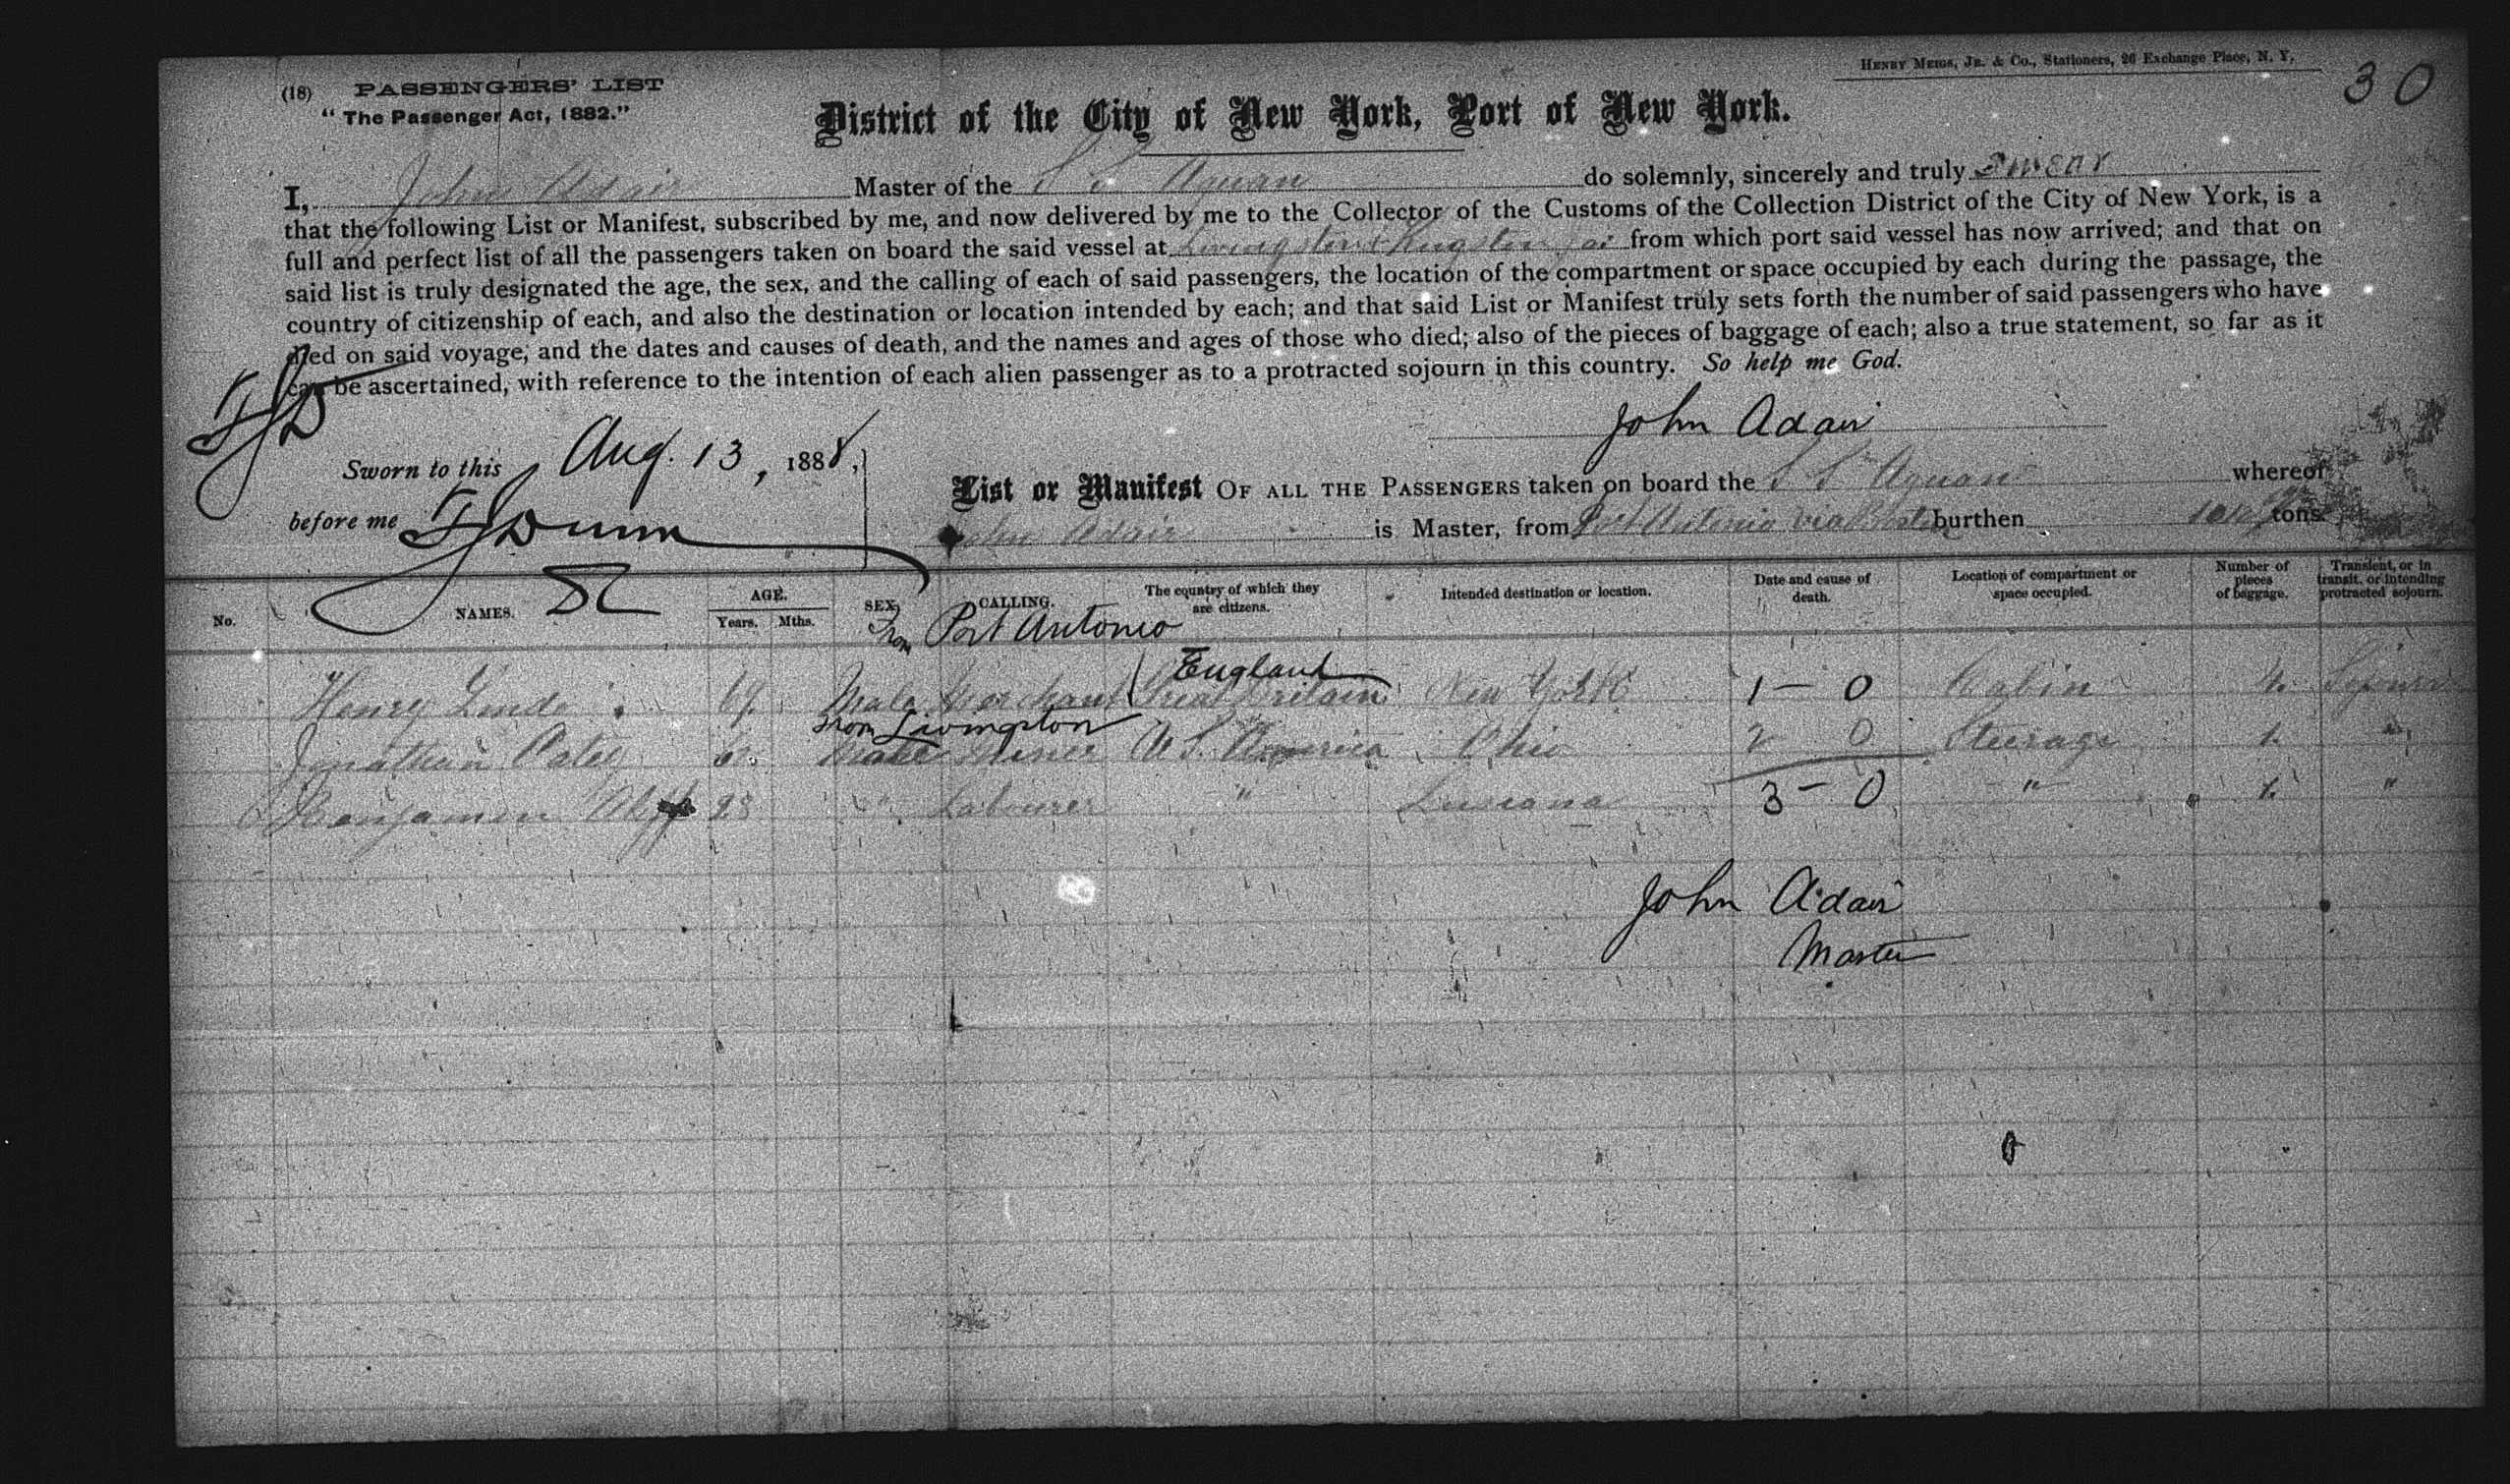 HENRY MEIGS, JR. & CO., Stationers, 26 Exchange Place, N. Y.
30
(18) PASSENGERS' LIST
"The Passenger Act, 1882."
District of the City of New York, Port of New York.
I, John Adair Master of the S S Aguan do solemnly, sincerely and truly swear
that the following List or Manifest, subscribed by me, and now delivered by me to the Collector of the Customs of the Collection District of the City of New York, is a
full and perfect list of all the passengers taken on board the said vessel at Livingston & Kingston Ja from which port said vessel has now arrived; and that on
said list is truly designated the age, the sex, and the calling of each of said passengers, the location of the compartment or space occupied by each during the passage, the
country of citizenship of each, and also the destination or location intended by each; and that said List or Manifest truly sets forth the number of said passengers who have
died on said voyage, and the dates and causes of death, and the names and ages of those who died; also of the pieces of baggage of each; also a true statement, so far as it
can be ascertained, with reference to the intention of each alien passenger as to a protracted sojourn in this country. So help me God.
John Adair
Sworn to this Aug. 13, 1888,
before me Dunn
List or Manifest OF ALL THE PASSENGERS taken on board the S S Aguan whereof
John Adair is Master, from Port Antonio via burthen tons.
No. NAMES. AGE. Years. Mths. SEX. CALLING. The country of which they are citizens. Intended destination or location. Date and cause of death. Location of compartment or space occupied. Number of pieces of baggage. Transient, or in transit, or intending protracted sojourn.
From Port Antonio
England
Henry Male Merchant Great Britain New York 1 - 0 Cabin
From Livingston
Jonathan Male Miner U S America Ohio 2 0 Steerage 1
Benjamin 28 " Labourer " Lusiana 3 - 0 " 1 "
John Adair
Master